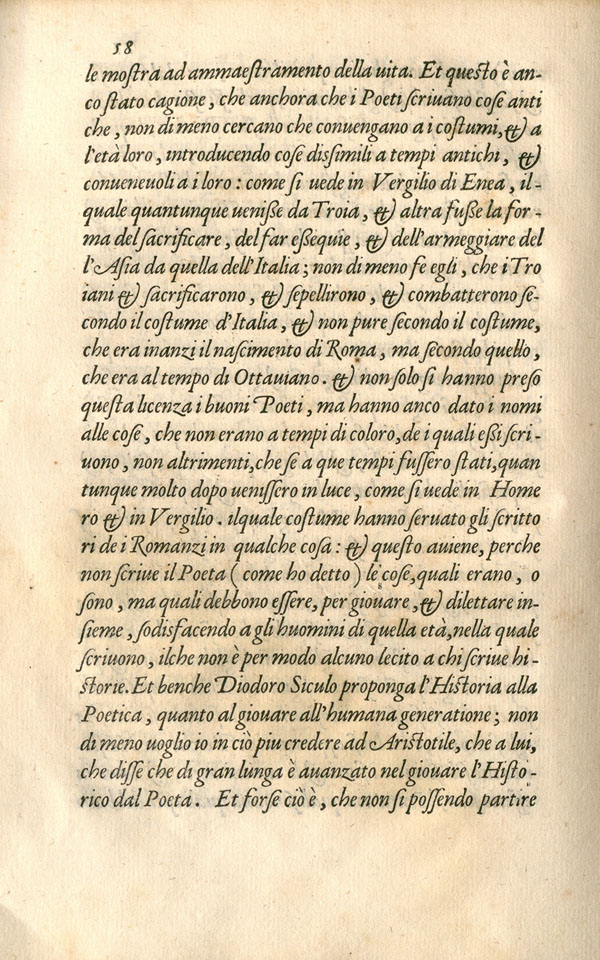 58
le mostra ad ammaestramento della uita. Et questo è an-
co stato cagione, che anchora che i Poeti scriuano cose anti
che, non di meno cercano che conuengano a i costumi, & a
l'età loro, introducendo cose dissimili a tempi antichi, &
conueneuoli a i loro: come si uede in Vergilio di Enea, il-
quale quantunque uenisse da Troia, & altra fusse la for-
ma del sacrificare, del far essequie, & dell'armeggiare del
l'Asia da quella dell'Italia; non di meno fe egli, che i Tro
iani & sacrificarono, & sepellirono, & combatterono se-
condo il costume d'Italia, & non pure secondo il costume,
che era inanzi il nascimento di Roma, ma secondo quello,
che era al tempo di Ottauiano. & non solo si hanno preso
questa licenza i buoni Poeti, ma hanno anco dato i nomi
alle cose, che non erano a tempi di coloro, de i quali essi scri-
uono, non altrimenti, che se a que tempi fussero stati, quan
tunque molto dopo uenissero in luce, come si uede in Home
ro & in Vergilio. ilquale costume hanno seruato gli scritto
ri de i Romanzi in qualche cosa: & questo auiene, perche
non scriue il Poeta (come ho detto) le cose, quali erano, o
sono, ma quali debbono essere, per giouare, & dilettare in-
sieme, sodisfacendo a gli huomini di quella età, nella quale
scriuono, ilche non è per modo alcuno lecito a chi scriue hi-
storie. Et benche Diodoro Siculo proponga l'Historia alla
Poetica, quanto al giouare all'humana generatione; non
di meno uoglio io in ciò piu credere ad Aristotile, che a lui,
che disse che di gran lunga è auanzato nel giouare l'Histo-
rico dal Poeta. Et forse ciò è, che non si possendo partire